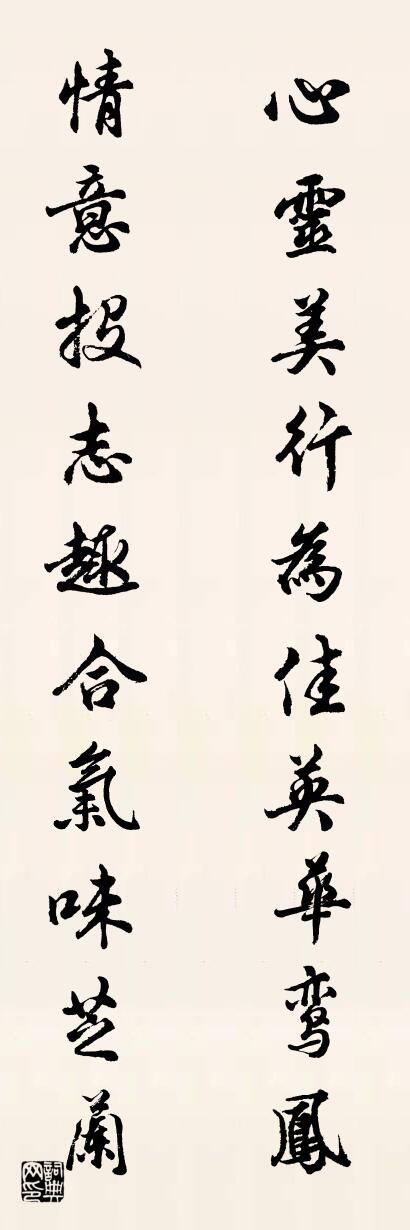 心靈美行為佳英華鸾鳳
情意投志趣合氣味芝蘭
詞典网印